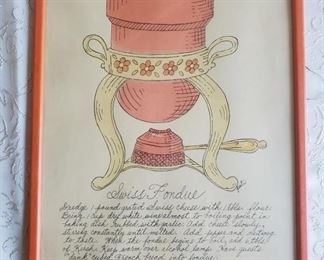 Swiss Fondue
Dredge 1 pound grated Swiss cheese with 1 tbls. flour.
Bring 1 cup dry white wine almost to boiling point in
baking dish rubbed with garlic. Add cheese slowly,
stirring constantly until melted. Add pepper and nutmeg
to taste. When the fondue begins to boil, add 6 tbls.
of Kirsch. Keep warm over alcohol lamp. Have guests
dunk cubed French bread into fondue.